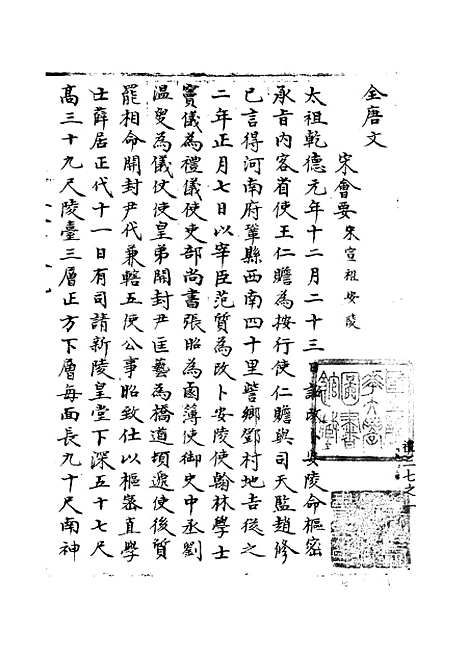 全唐文
宋會要 宋宣祖安陵
太祖乾德元年十二月二十三日詔改卜安陵命樞密
承旨內客省使王仁贍為按行使仁贍與司天監趙修
己言得河南府鞏縣西南四十里訾鄉鄧村地吉從之
二年正月七日以宰臣范質為改卜安陵使翰林學士
竇儀為禮儀使吏部尚書張昭為鹵簿使御史中丞劉
溫叟為儀仗使皇弟開封尹匡藝為橋道頓遞使後質
罷相命開封尹代兼轄五使公事昭致仕以樞密直學
士薛居正代十一日有司請新陵皇堂下深五十七尺
高三十九尺陵臺三層正方下層每面長九十尺南神
禮三七之一